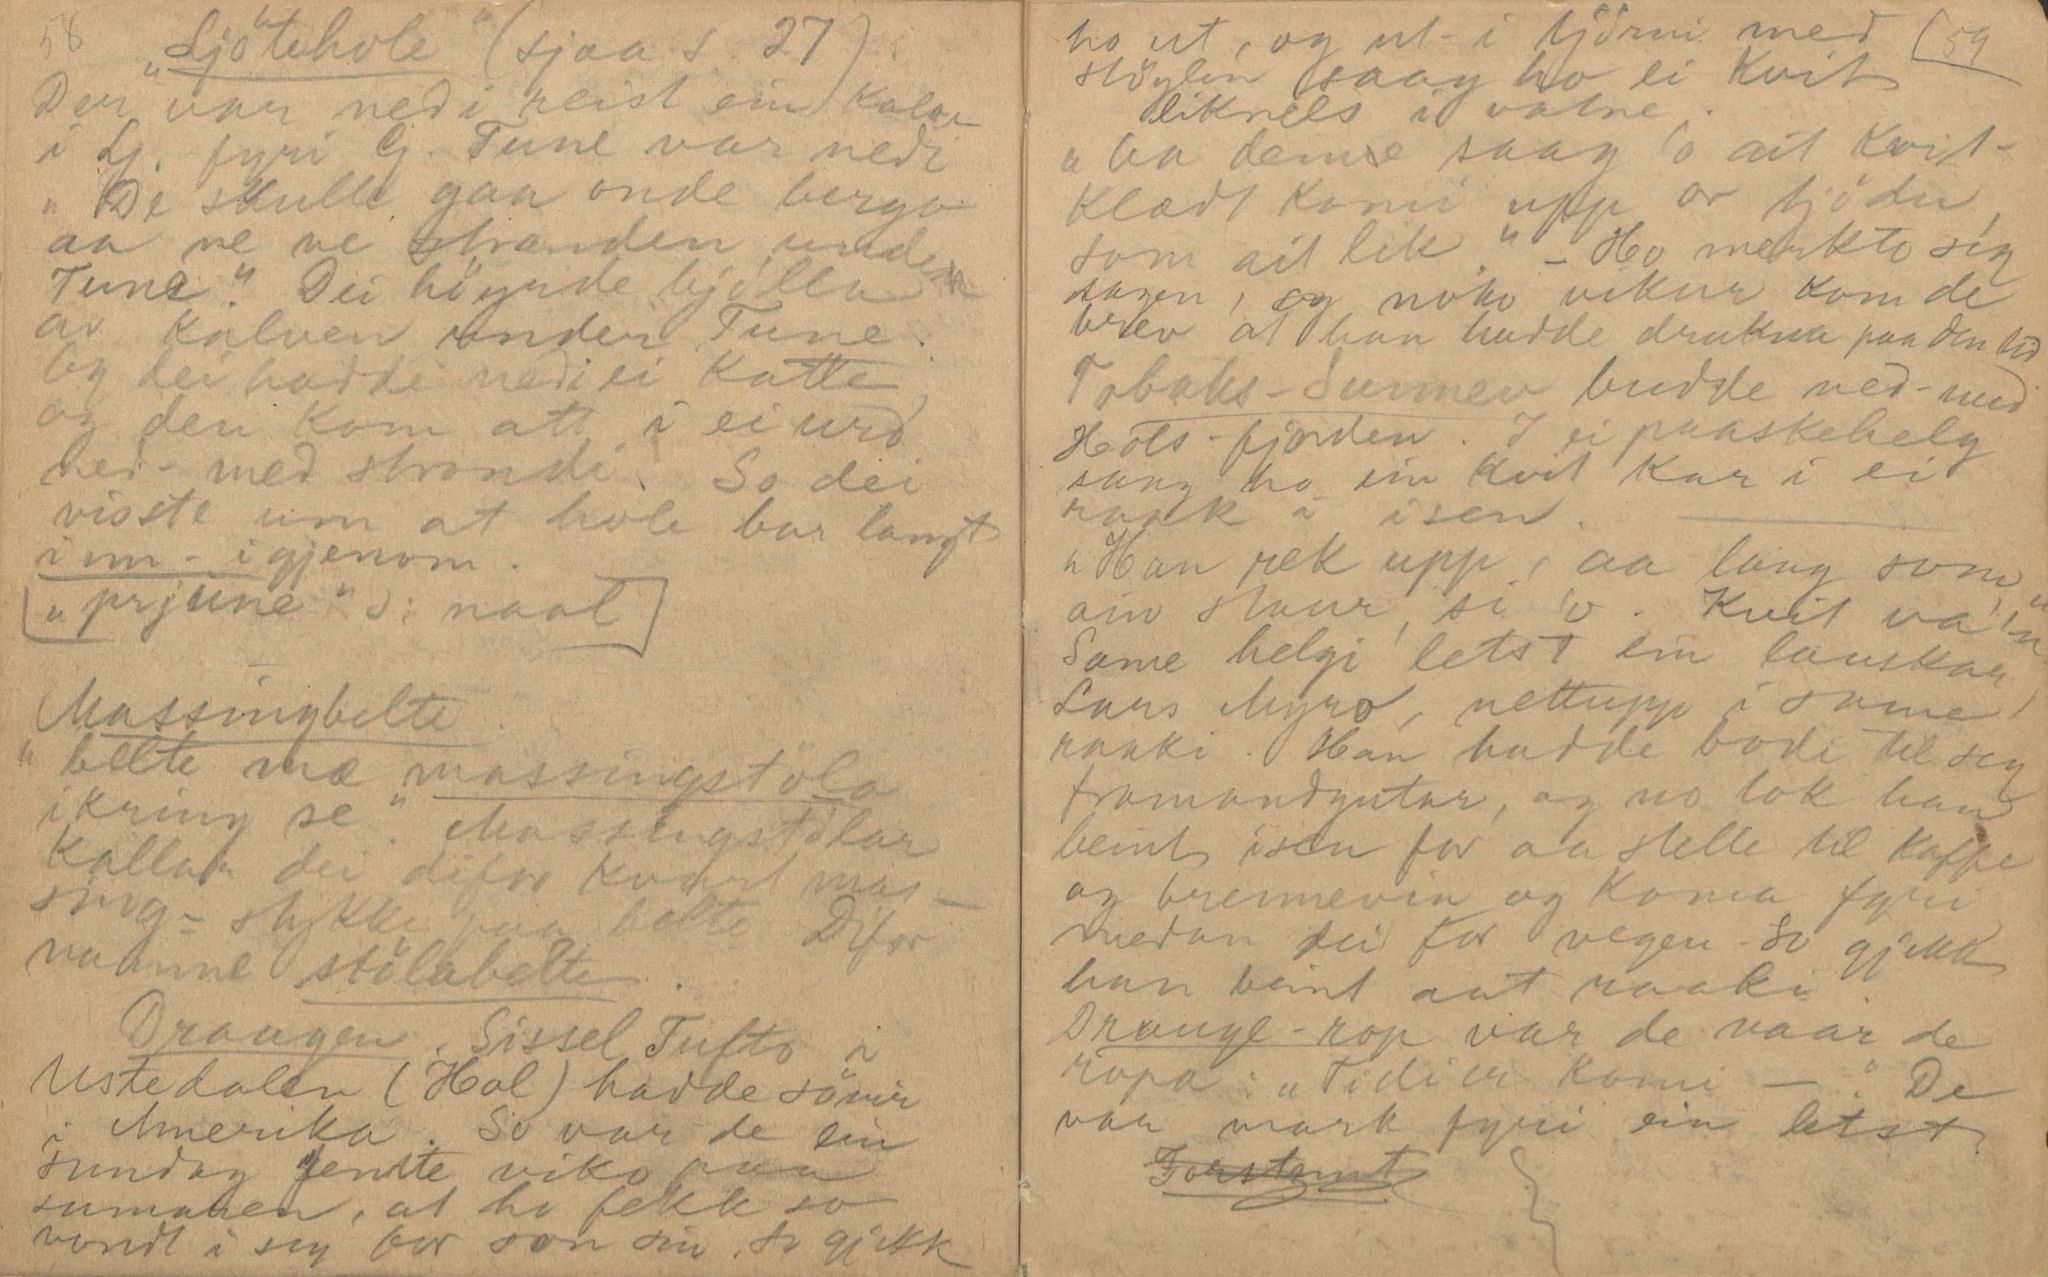 58
"Ljötehole" (sjaa s. 27)
Der var nedi reist ein Kalv
i Lj. fyri Gj. Tune var nedi
"De skulle gaa onde bergo
aa ne ve stranden unde
Tune." Dei höyrde bjölla
av Kalven under Tune.
Og dei hadde nedi ei Katte,
og den kom att i ei urd
ned-med strondi. So dei
visste um at hole bar langt
inn-igjenom.
["prjune" ɔ: naal]
Massingbelte.
"belte mæ massingstöla
ikring se". Massingstölar
Kallar dei difor kvart mas-
sing-stykke paa belte Difor
namne stölabelte.
Draugen. Sissel Tufto i
Ustedalen (Hol) hadde söner
i Amerika. So var de ein
sundag fenste viko paa
sumaren, at ho fekk so
vondt i seg for son sin. So gjekk
59
ho ut, og ut-i tjörni med
stöylin saag ho ei Kvit
liknels i vatne.
"ba denne saag 'o ait Kvit-
Klædt komi upp or tjödn,
som ait lik." - Ho merkto sig
dagen, og noko vikur kom de
brev at han hadde drukna paa den tid
Tobaks-Sunnev budde ned-med
Hols-fjorden. I ei paaskehelg
saag ho ein Kvit Kar i ei
raak i isen.
"Han rek upp, aa lang som
ain staur, si 'o. Kvit va 'n"
Same helgi letst ein lauskar
Lars Myro, nettupp i same
raaki. Han hadde bode til seg
framandgutar, og no tok han
beint isen for aa stelle til Kaffe
og brennevin og Koma fyri
medan dei for vegen. So gjekk
han beint aat raaki.
Drauge-rop var de naar de
ropa: "Tidi er komi -." De
var mark fyri ein letst